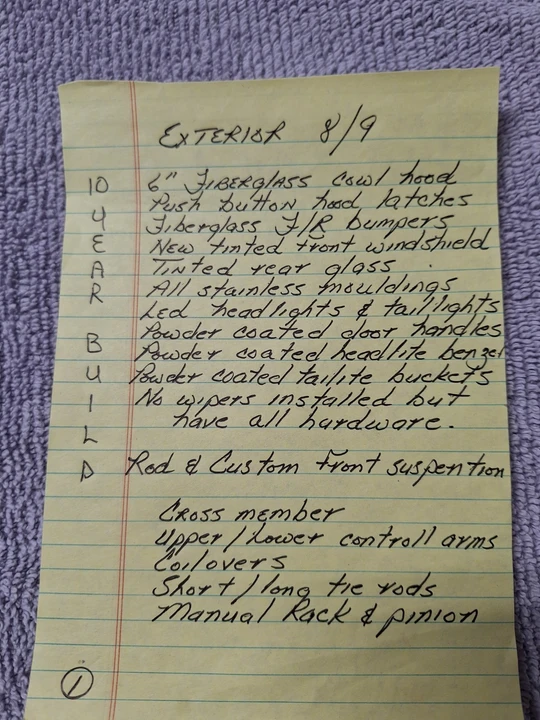 EXTERIOR 8/9
10 6" FIBERGLASS COWL hood
Push button hood latches
Y Fiberglass F/R bumpers
E New tinted front windshield
A Tinted rear glass
R All stainless mouldings
Led headlights & taillights
B Powder coated door handles
Powder coated headlite benzel
U Powder coated tailite buckets
I No wipers installed but
have all hardware.
L
D Rod & Custom front suspention
Cross member
Upper/Lower controll arms
Coilovers
Short/long tie rods
Manual Rack & pinion
1